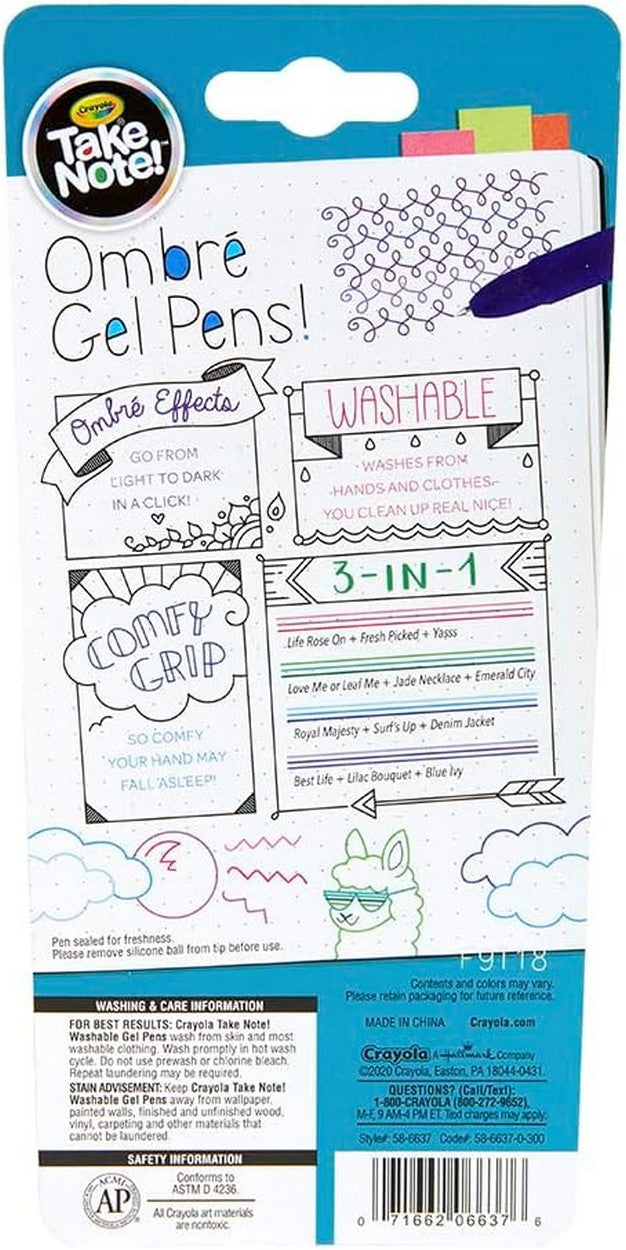 Crayola
Take
Note!™
Ombré
Gel Pens!
Ombré Effects
GO FROM
LIGHT TO DARK
IN A CLICK!
WASHABLE
WASHES FROM
HANDS AND CLOTHES-
YOU CLEAN UP REAL NICE!
COMFY
GRIP
SO COMFY
YOUR HAND MAY
FALL ASLEEP!
3-IN-1
Life Rose On + Fresh Picked + Yasss
Love Me or Leaf Me + Jade Necklace + Emerald City
Royal Majesty + Surf's Up + Denim Jacket
Best Life + Lilac Bouquet + Blue Ivy
Pen sealed for freshness.
Please remove silicone ball from tip before use.
F9118
Contents and colors may vary.
Please retain packaging for future reference.
MADE IN CHINA Crayola.com
Crayola A Hallmark Company
©2020 Crayola, Easton, PA 18044-0431.
QUESTIONS? (Call/Text):
1-800-CRAYOLA (800-272-9652),
M-F, 9 AM-4 PM ET. Text charges may apply.
Style#: 58-6637 Code#: 58-6637-0-300
WASHING & CARE INFORMATION
FOR BEST RESULTS: Crayola Take Note!
Washable Gel Pens wash from skin and most
washable clothing. Wash promptly in hot wash
cycle. Do not use prewash or chlorine bleach.
Repeat laundering may be required.
STAIN ADVISEMENT: Keep Crayola Take Note!
Washable Gel Pens away from wallpaper,
painted walls, finished and unfinished wood,
vinyl, carpeting and other materials that
cannot be laundered.
SAFETY INFORMATION
ACMI
AP
Conforms to
ASTM D 4236.
All Crayola art materials
are nontoxic.
0 71662 06637 6